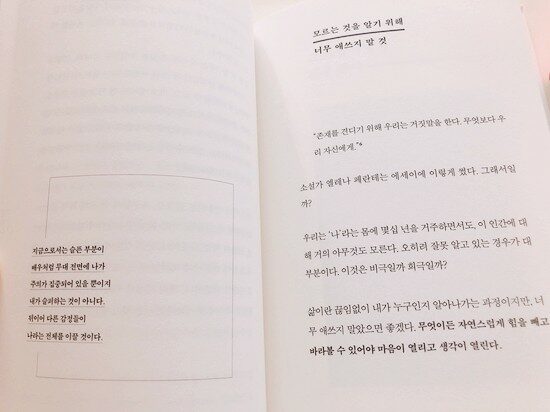 지금으로서는 슬픈 부분이
배우처럼 무대 전면에 나가
주의가 집중되어 있을 뿐이지
내가 슬퍼하는 것이 아니다.
뒤이어 다른 감정들이
나라는 전체를 이끌 것이다.
모르는 것을 알기 위해
너무 애쓰지 말 것
"존재를 견디기 위해 우리는 거짓말을 한다. 무엇보다 우
리 자신에게."
소설가 엘레나 페란테는 에세이에 이렇게 썼다. 그래서일
까?
우리는 '나'라는 몸에 몇십 년을 거주하면서도, 이 인간에 대
해 거의 아무것도 모른다. 오히려 잘못 알고 있는 경우가 대
부분이다. 이것은 비극일까 희극일까?
삶이란 끊임없이 내가 누구인지 알아나가는 과정이지만, 너
무 애쓰지 말았으면 좋겠다. 무엇이든 자연스럽게 힘을 빼고
바라볼 수 있어야 마음이 열리고 생각이 열린다.